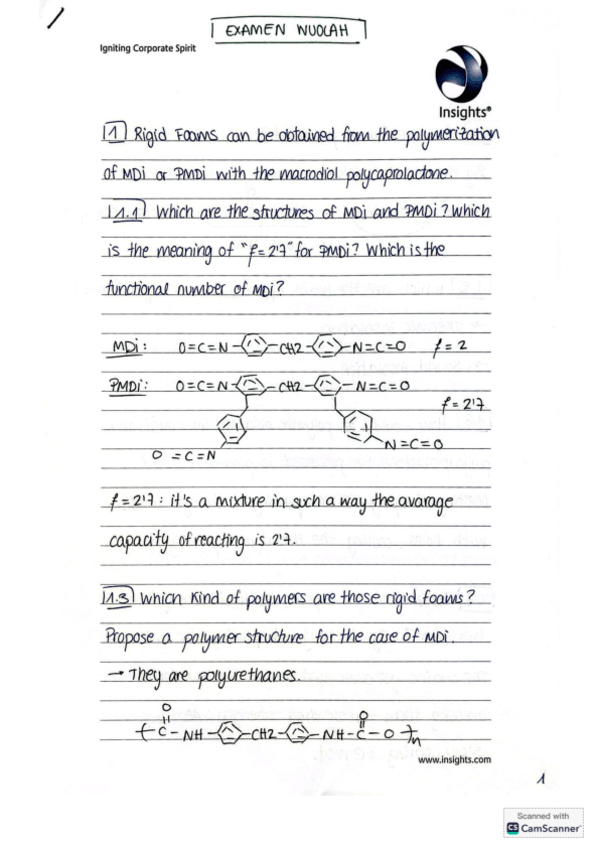 EXAMEN WUOLAH
Igniting Corporate Spirit
Insights®
1 Rigid Foams can be obtained from the polymerization
of MDi or PMDi with the macrodiol polycaprolactone.
1.1 Which are the structures of MDi and PMDi? Which
is the meaning of "f=2'7" for PMDi? Which is the
functional number of MDi?
MDi: O=C=N CH2 N=C=O f=2
PMDi: O=C=N CH2 N=C=O
f=2'7
N=C=O
O=C=N
f=2'7: it's a mixture in such a way the avarage
capacity of reacting is 2'7.
1.3 Which kind of polymers are those rigid foams?
Propose a polymer structure for the case of MDi.
→ They are polyurethanes.
O O
C-NH CH2 NH-C-O n
www.insights.com
1
Scanned with
CS CamScanner